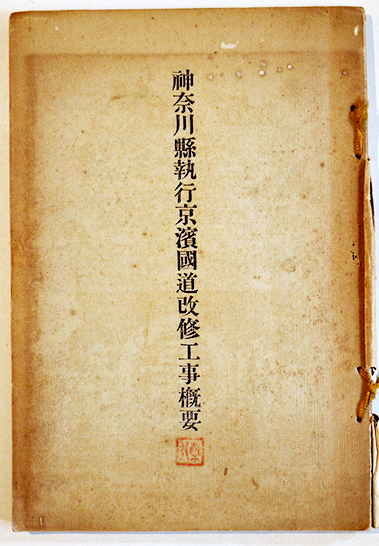 神奈川縣執行京濱國道改修工事概要